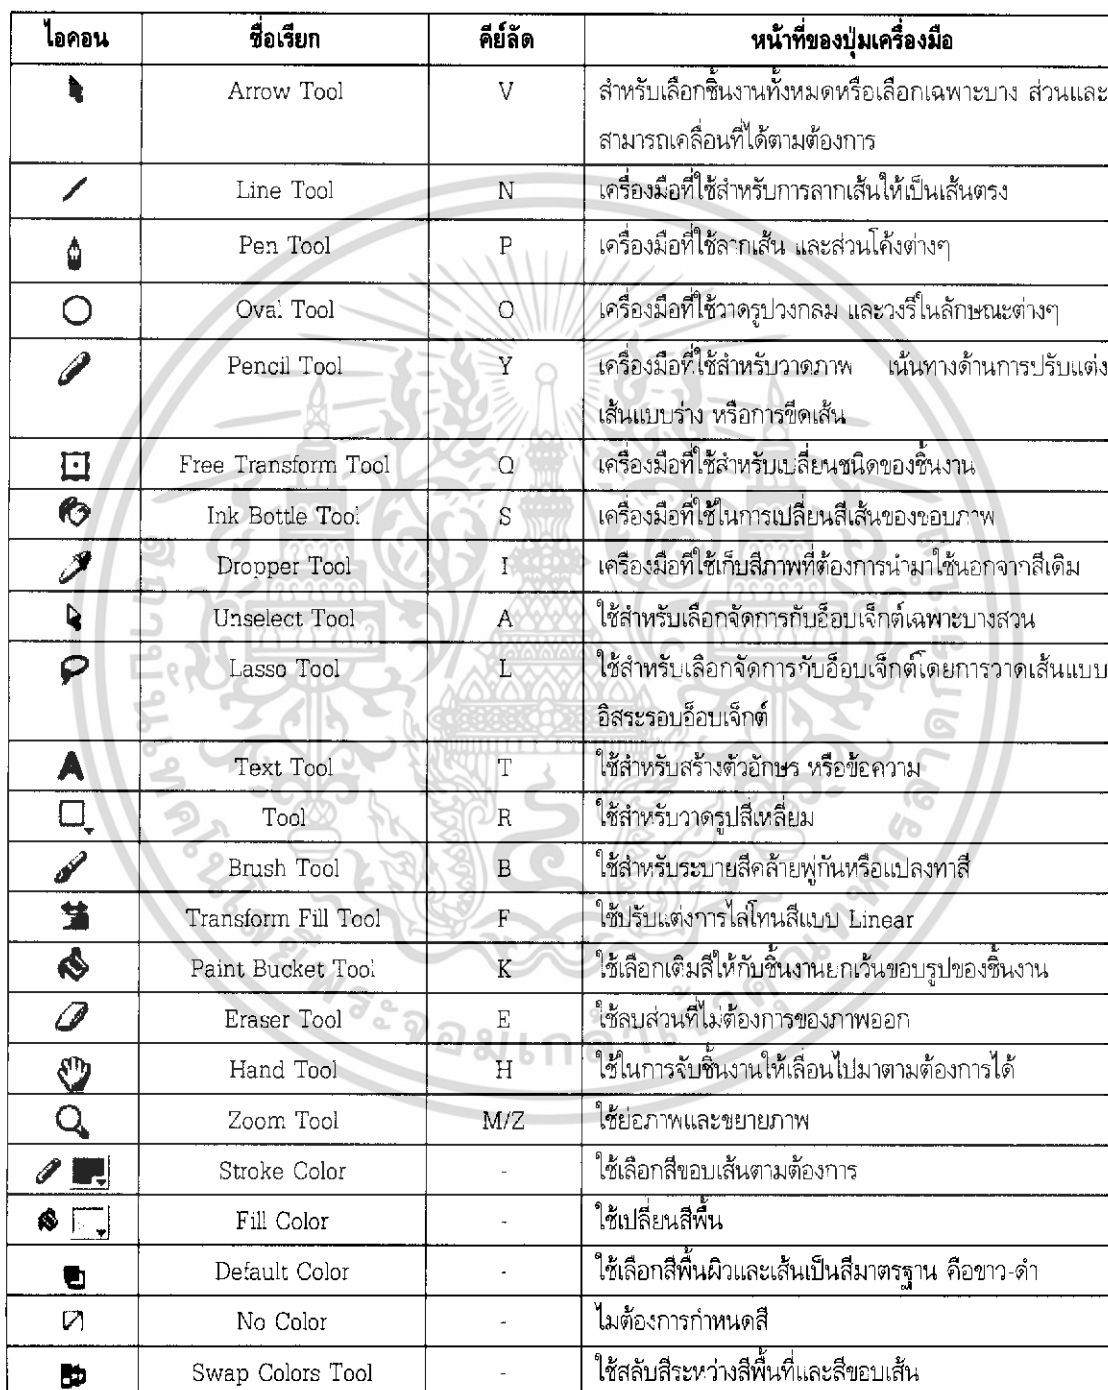 ไอคอน ชื่อเรียก คีย์ลัด หน้าที่ของปุ่มเครื่องมือ
Arrow Tool V สำหรับเลือกชิ้นงานทั้งหมดหรือเลือกเฉพาะบาง ส่วนและ
สามารถเคลื่อนที่ได้ตามต้องการ
Line Tool N เครื่องมือที่ใช้สำหรับการลากเส้นให้เป็นเส้นตรง
Pen Tool P เครื่องมือที่ใช้ลากเส้น และส่วนโค้งต่างๆ
Oval Tool O เครื่องมือที่ใช้วาดรูปวงกลม และวงรีในลักษณะต่างๆ
Pencil Tool Y เครื่องมือที่ใช้สำหรับวาดภาพ เน้นทางด้านการปรับแต่ง
เส้นแบบร่าง หรือการขีดเส้น
Free Transform Tool Q เครื่องมือที่ใช้สำหรับเปลี่ยนชนิดของชิ้นงาน
Ink Bottle Tool S เครื่องมือที่ใช้ในการเปลี่ยนสีเส้นของขอบภาพ
Dropper Tool I เครื่องมือที่ใช้เก็บสีภาพที่ต้องการนำมาใช้นอกจากสีเดิม
Unselect Tool A ใช้สำหรับเลือกจัดการกับอ็อบเจ็กต์เฉพาะบางส่วน
Lasso Tool L ใช้สำหรับเลือกจัดการกับอ็อบเจ็กต์โดยการวาดเส้นแบบ
อิสระรอบอ็อบเจ็กต์
Text Tool T ใช้สำหรับสร้างตัวอักษร หรือข้อความ
Tool R ใช้สำหรับวาดรูปสี่เหลี่ยม
Brush Tool B ใช้สำหรับระบายสีคล้ายพู่กันหรือแปลงทาสี
Transform Fill Tool F ใช้ปรับแต่งการไล่โทนสีแบบ Linear
Paint Bucket Tool K ใช้เลือกเติมสีให้กับชิ้นงานยกเว้นขอบรูปของชิ้นงาน
Eraser Tool E ใช้ลบส่วนที่ไม่ต้องการของภาพออก
Hand Tool H ใช้ในการจับชิ้นงานให้เลื่อนไปมาตามต้องการได้
Zoom Tool M/Z ใช้ย่อภาพและขยายภาพ
Stroke Color - ใช้เลือกสีขอบเส้นตามต้องการ
Fill Color - ใช้เปลี่ยนสีพื้น
Default Color - ใช้เลือกสีพื้นผิวและเส้นเป็นสีมาตรฐาน คือขาว-ดำ
No Color - ไม่ต้องการกำหนดสี
Swap Colors Tool - ใช้สลับสีระหว่างสีพื้นที่และสีขอบเส้น